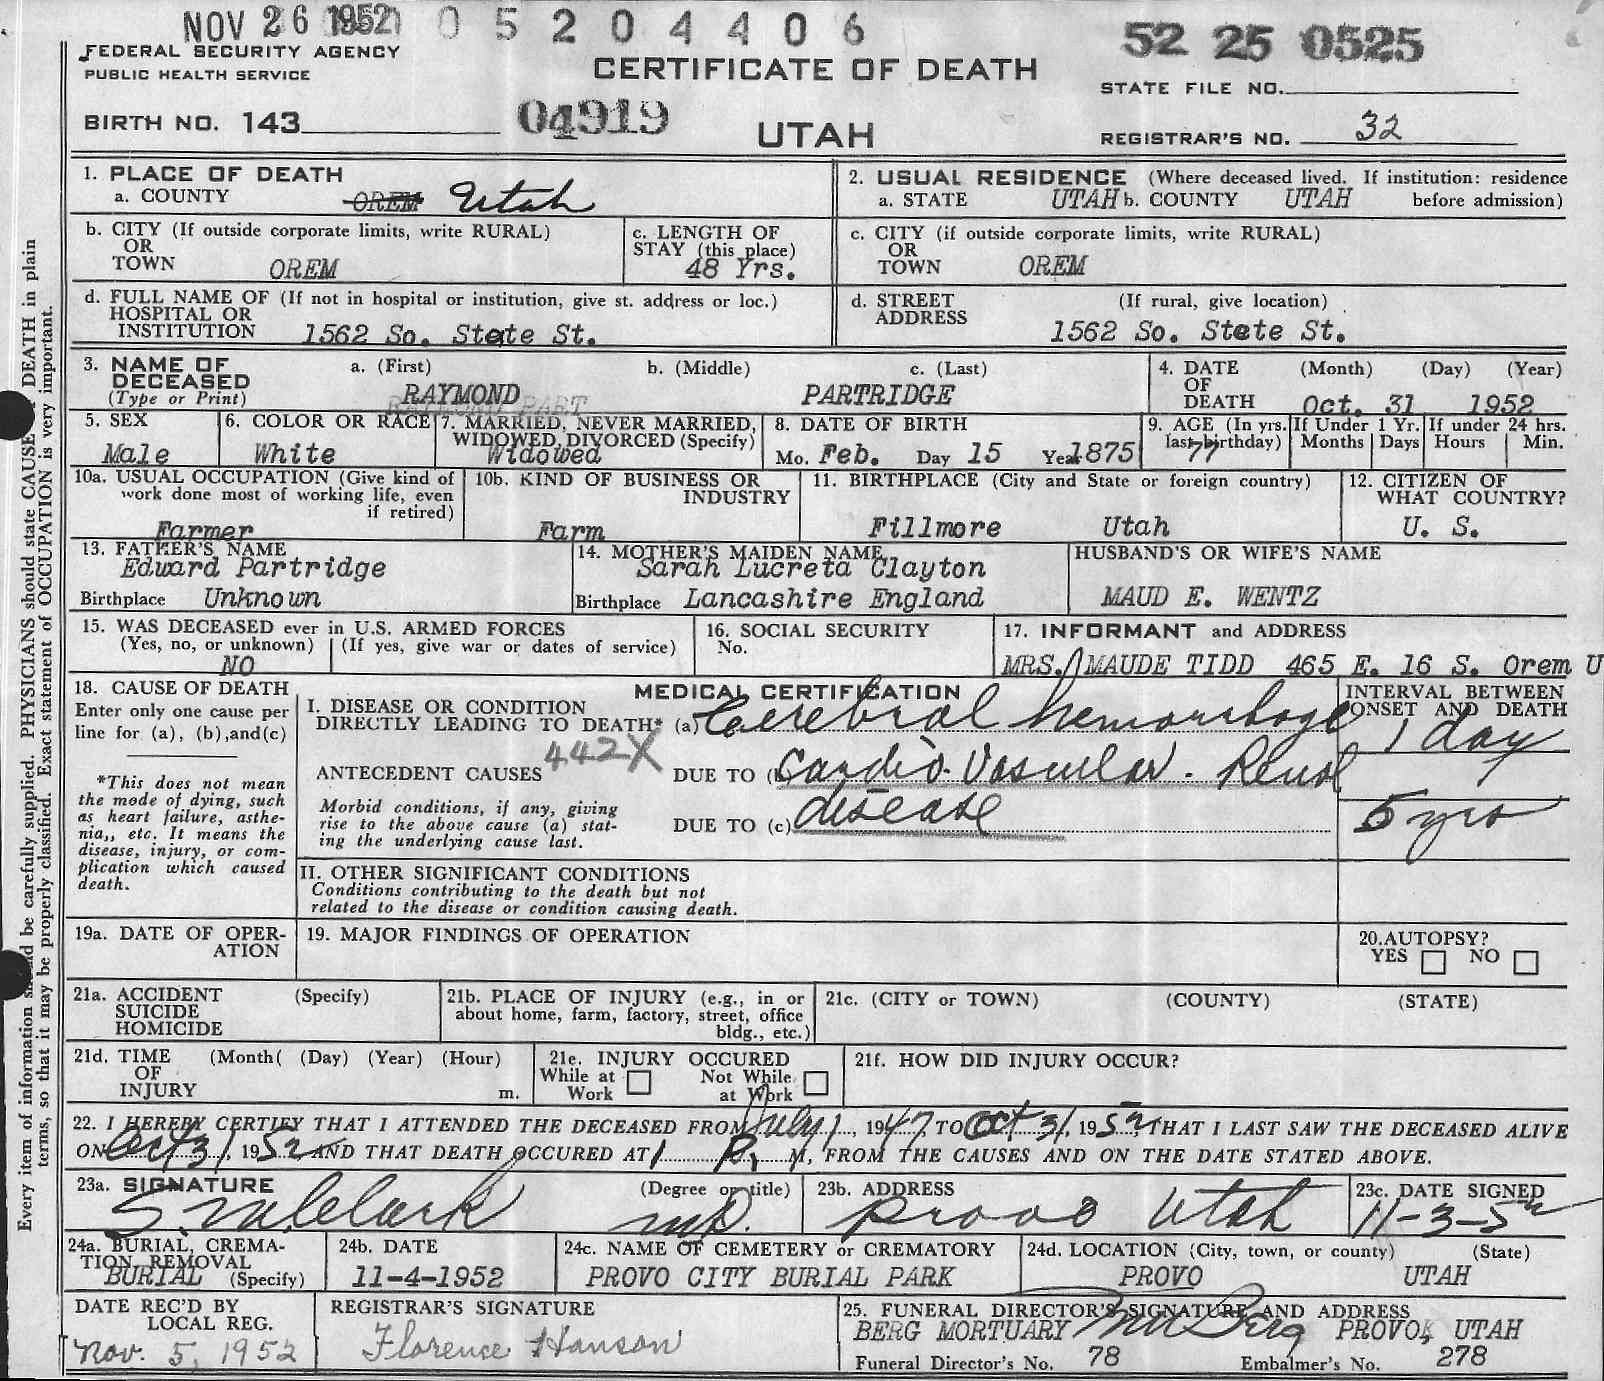 NOV 26 1952 0 5 2 0 4 4 0 6 52 25 0525
FEDERAL SECURITY AGENCY
PUBLIC HEALTH SERVICE
CERTIFICATE OF DEATH
STATE FILE NO.
BIRTH NO. 143 04919
UTAH
REGISTRAR'S NO. 32
1. PLACE OF DEATH
a. COUNTY OREM Utah
2. USUAL RESIDENCE (Where deceased lived. If institution: residence
a. STATE UTAH b. COUNTY UTAH before admission)
b. CITY (If outside corporate limits, write RURAL)
OR
TOWN OREM
c. LENGTH OF
STAY (this place)
48 Yrs.
c. CITY (if outside corporate limits, write RURAL)
OR
TOWN OREM
d. FULL NAME OF (If not in hospital or institution, give st. address or loc.)
HOSPITAL OR
INSTITUTION 1562 So. State St.
d. STREET (If rural, give location)
ADDRESS
1562 So. State St.
3. NAME OF a. (First) b. (Middle) c. (Last)
DECEASED
(Type or Print) RAYMOND PARTRIDGE
RAYMOND PART
4. DATE (Month) (Day) (Year)
OF
DEATH Oct. 31 1952
5. SEX
Male
6. COLOR OR RACE
White
7. MARRIED, NEVER MARRIED,
WIDOWED, DIVORCED (Specify)
Widowed
8. DATE OF BIRTH
Mo. Feb. Day 15 Year 1875
9. AGE (In yrs.
last birthday)
77
If Under 1 Yr.
Months Days
If under 24 hrs.
Hours Min.
10a. USUAL OCCUPATION (Give kind of
work done most of working life, even
if retired)
Farmer
10b. KIND OF BUSINESS OR
INDUSTRY
Farm
11. BIRTHPLACE (City and State or foreign country)
Fillmore Utah
12. CITIZEN OF
WHAT COUNTRY?
U. S.
13. FATHER'S NAME
Edward Partridge
Birthplace Unknown
14. MOTHER'S MAIDEN NAME
Sarah Lucreta Clayton
Birthplace Lancashire England
HUSBAND'S OR WIFE'S NAME
MAUD E. WENTZ
15. WAS DECEASED ever in U.S. ARMED FORCES
(Yes, no, or unknown) (If yes, give war or dates of service)
NO
16. SOCIAL SECURITY
No.
17. INFORMANT and ADDRESS
MRS. MAUDE TIDD 465 E. 16 S. Orem U
18. CAUSE OF DEATH
Enter only one cause per
line for (a), (b),and(c)
*This does not mean
the mode of dying, such
as heart failure, asthe-
nia,, etc. It means the
disease, injury, or com-
plication which caused
death.
MEDICAL CERTIFICATION
I. DISEASE OR CONDITION
DIRECTLY LEADING TO DEATH* (a) Cerebral hemorrhage
442X
ANTECEDENT CAUSES DUE TO (b) Cardio-Vascular-Renal
Morbid conditions, if any, giving
rise to the above cause (a) stat-
ing the underlying cause last.
DUE TO (c) disease
INTERVAL BETWEEN
ONSET AND DEATH
1 day
5 yrs
II. OTHER SIGNIFICANT CONDITIONS
Conditions contributing to the death but not
related to the disease or condition causing death.
19a. DATE OF OPER-
ATION
19. MAJOR FINDINGS OF OPERATION
20.AUTOPSY?
YES NO
21a. ACCIDENT (Specify)
SUICIDE
HOMICIDE
21b. PLACE OF INJURY (e.g., in or
about home, farm, factory, street, office
bldg., etc.)
21c. (CITY or TOWN) (COUNTY) (STATE)
21d. TIME (Month( (Day) (Year) (Hour)
OF
INJURY m.
21e. INJURY OCCURED
While at Not While
Work at Work
21f. HOW DID INJURY OCCUR?
22. I HEREBY CERTIFY THAT I ATTENDED THE DECEASED FROM July 1, 1947, TO Oct 31, 1952, THAT I LAST SAW THE DECEASED ALIVE
ON Oct 31, 1952 AND THAT DEATH OCCURED AT 1 P. M, FROM THE CAUSES AND ON THE DATE STATED ABOVE.
23a. SIGNATURE (Degree or title)
S. M. Clark MD.
23b. ADDRESS
Provo Utah
23c. DATE SIGNED
11-3-52
24a. BURIAL, CREMA-
TION, REMOVAL
BURIAL (Specify)
24b. DATE
11-4-1952
24c. NAME OF CEMETERY or CREMATORY
PROVO CITY BURIAL PARK
24d. LOCATION (City, town, or county) (State)
PROVO UTAH
DATE REC'D BY
LOCAL REG.
Nov. 5, 1952
REGISTRAR'S SIGNATURE
Florence Hanson
25. FUNERAL DIRECTOR'S SIGNATURE AND ADDRESS
BERG MORTUARY Berg PROVO, UTAH
Funeral Director's No. 78 Embalmer's No. 278
Every item of information should be carefully supplied. PHYSICIANS should state CAUSE DEATH in plain
terms, so that it may be properly classified. Exact statement of OCCUPATION is very important.